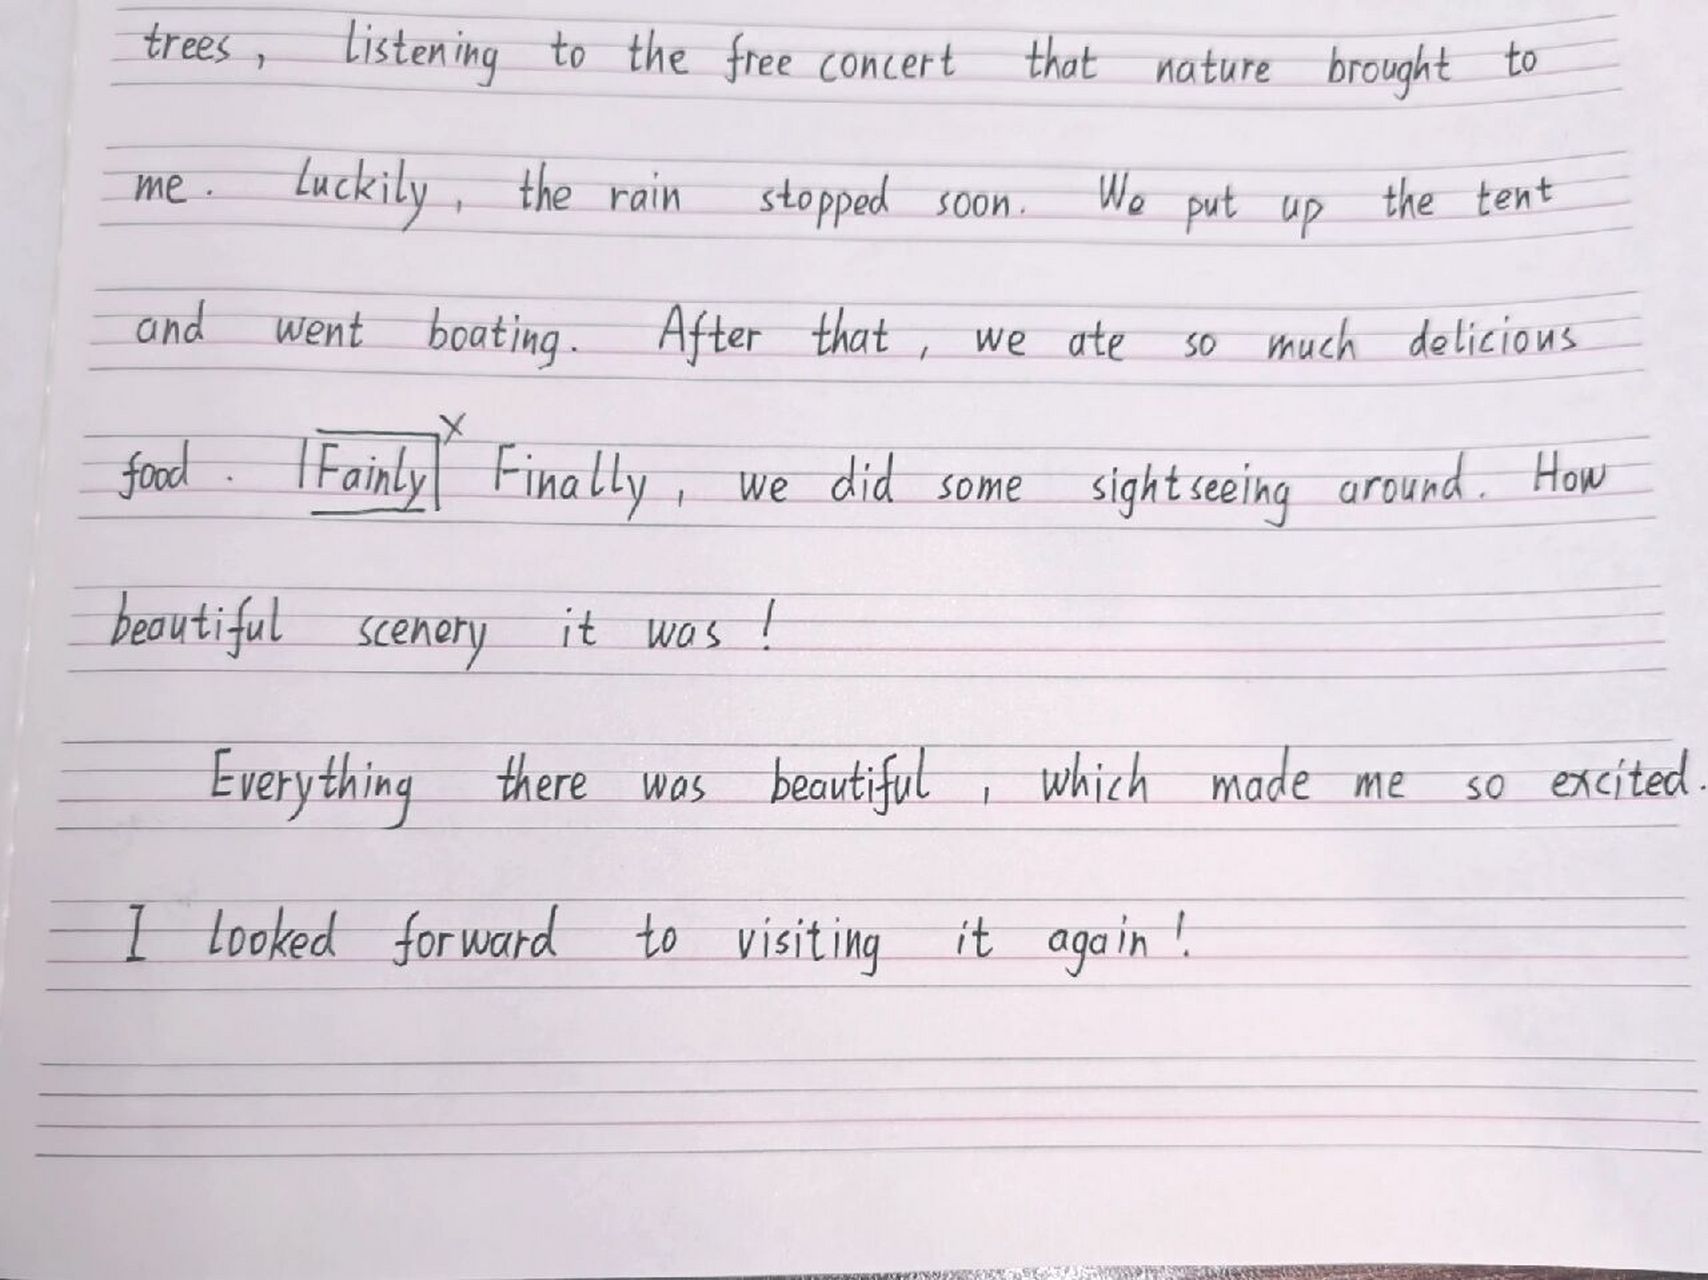 trees, listening to the free concert that nature brought to
me. Luckily, the rain stopped soon. We put up the tent
and went boating. After that, we ate so much delicious
food. Fainly X Finally, we did some sightseeing around. How
beautiful scenery it was!
Everything there was beautiful, which made me so excited.
I looked forward to visiting it again!